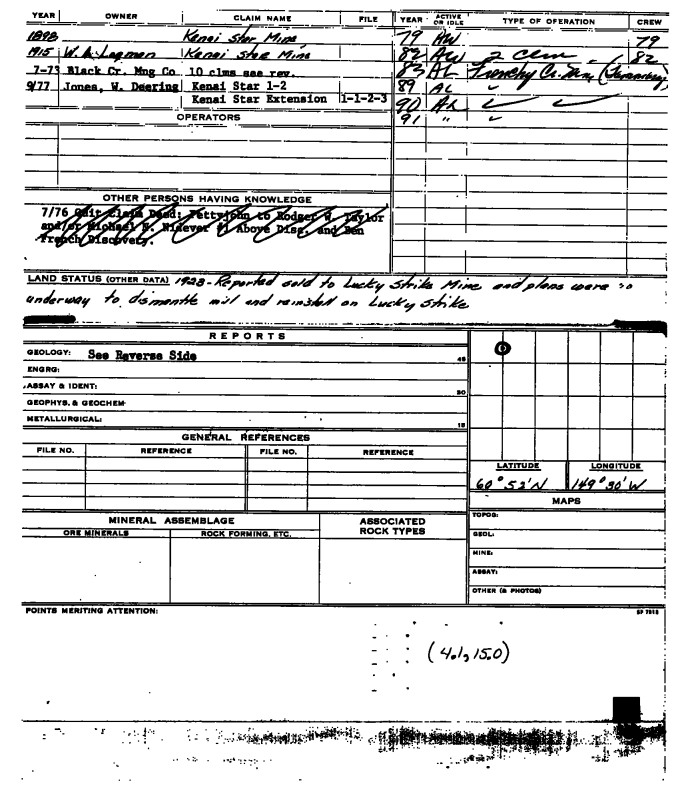 YEAR OWNER CLAIM NAME FILE YEAR ACTIVE OR IDLE TYPE OF OPERATION CREW
1898 Kenai Star Mine 79 AW 79
1915 W. A. Logman Kenai Star Mine 82 AW 2 Clm 82
7-73 Black Cr. Mng Co 10 clms see rev. 83 AL
9/77 Jones, W. Deering Kenai Star 1-2 89 AL
Kenai Star Extension 1-1-2-3 90 AL ✓ ✓
OPERATORS 91 " ✓
OTHER PERSONS HAVING KNOWLEDGE
7/76 Quit Claim Deed: Pettyjohn to Rodger W. Taylor
and/or Michael N. Nidever #1 Above Disc. and Ben
French Discovery.
LAND STATUS (OTHER DATA) 1928 - Reported sold to Lucky Strike Mine and plans were
underway to dismantle mill and reinstall on Lucky Strike
REPORTS
GEOLOGY: See Reverse Side 45
ENGRG:
ASSAY & IDENT: 30
GEOPHYS. & GEOCHEM
METALLURGICAL: 15
GENERAL REFERENCES
FILE NO. REFERENCE FILE NO. REFERENCE
LATITUDE LONGITUDE
60° 52' N 149° 30' W
MAPS
TOPOG:
MINERAL ASSEMBLAGE ASSOCIATED ROCK TYPES
ORE MINERALS ROCK FORMING, ETC.
GEOL:
MINE:
ASSAY:
OTHER (& PHOTOS)
POINTS MERITING ATTENTION:
(4.1, 15.0)